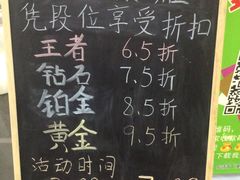 凭段位享受折扣
王者 6.5折
钻石 7.5折
铂金 8.5折
黄金 9.5折
活动时间